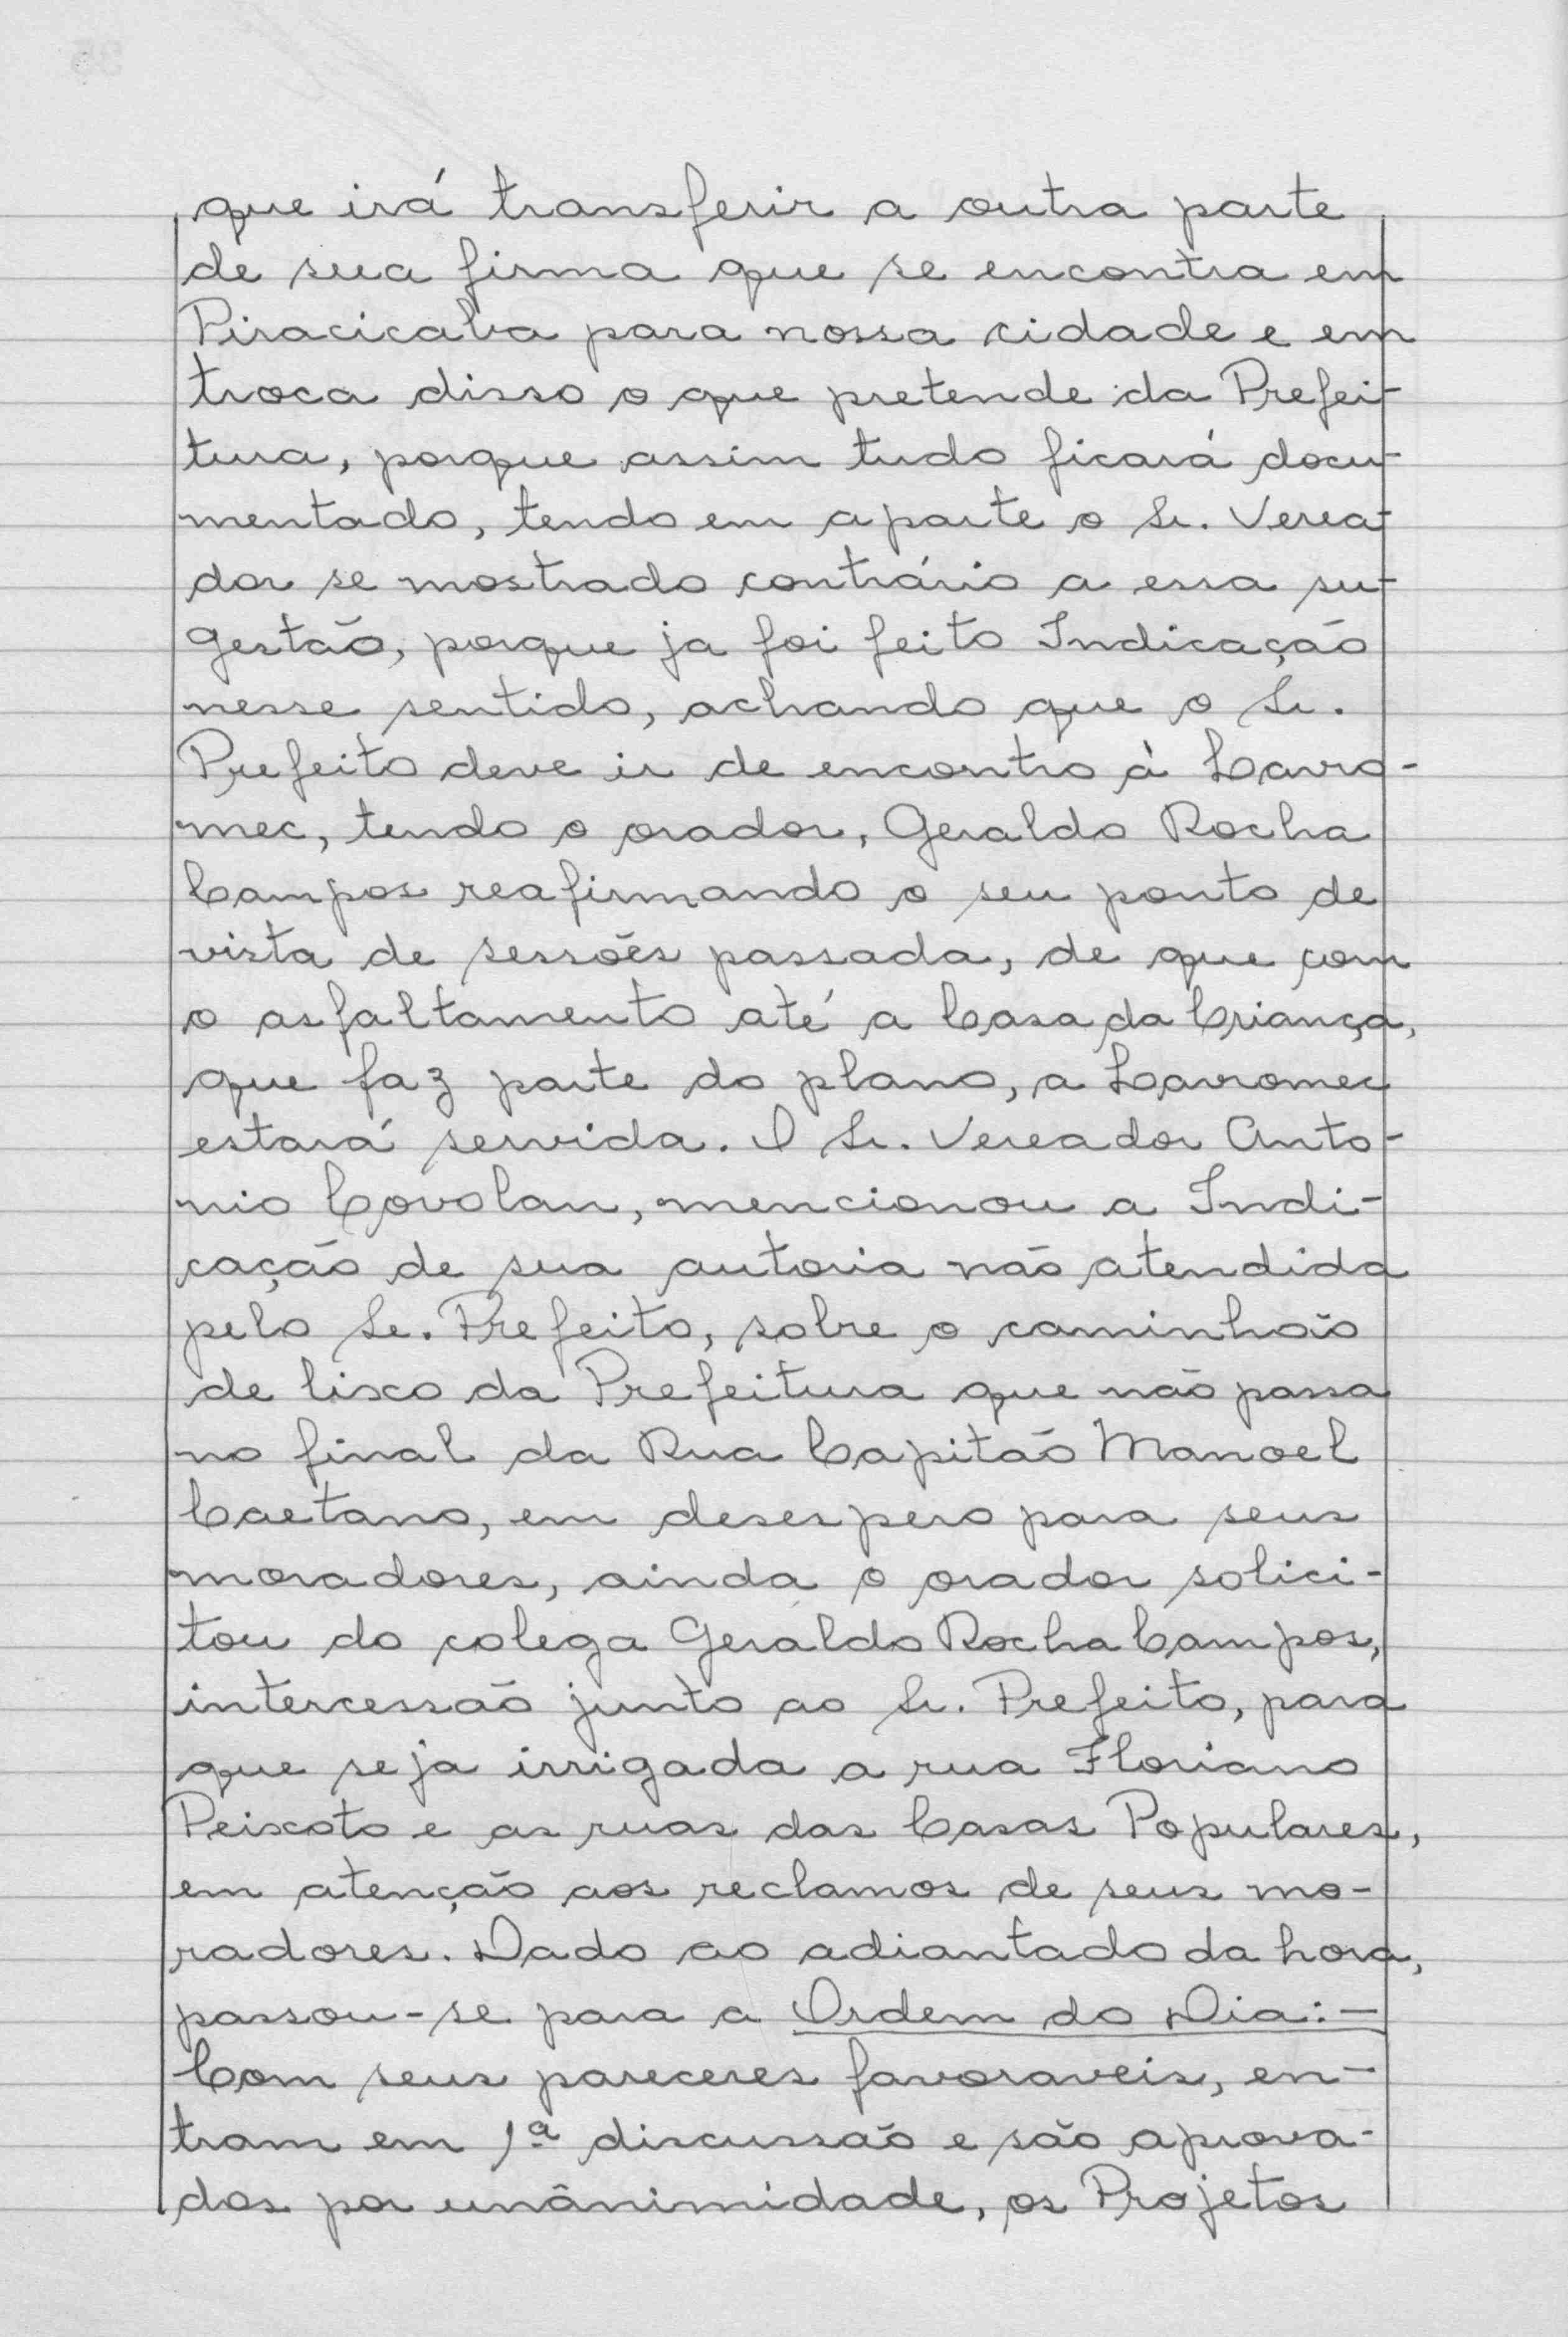 que irá transferir a outra parte
de sua firma que se encontra em
Piracicaba para nossa cidade e em
troca disso o que pretende da Prefei-
tura, porque assim tudo ficará docu-
mentado, tendo em aparte o Sr. Verea-
dor se mostrado contrário a essa su-
gestão, porque ja foi feito Indicação
nesse sentido, achando que o Sr.
Prefeito deve ir de encontro à Lavro-
mec, tendo o orador, Geraldo Rocha
Campos reafirmando o seu ponto de
vista de sessões passada, de que com
o asfaltamento até a Casa da Criança,
que faz parte do plano, a Lavromec
estará servida. O Sr. Vereador Anto-
nio Covolan, mencionou a Indi-
cação de sua autoria não atendida
pelo Sr. Prefeito, sobre o caminhão
de lixo da Prefeitura que não passa
no final da Rua Capitão Manoel
Caetano, em desespero para seus
moradores, ainda o orador solici-
tou do colega Geraldo Rocha Campos,
intercessão junto ao Sr. Prefeito, para
que seja irrigada a rua Floriano
Peixoto e as ruas das Casas Populares,
em atenção aos reclamos de seus mo-
radores. Dado ao adiantado da hora,
passou-se para a Ordem do Dia:-
Com seus pareceres favoraveis, en-
tram em 1ª discussão e são aprova-
dos por unânimidade, os Projetos